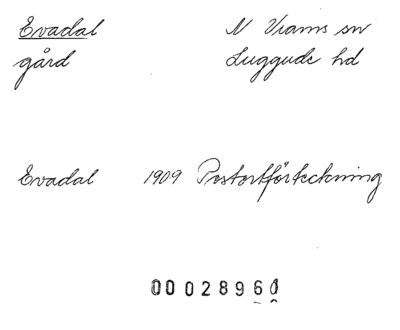 Evadal N Vrams sn
gård Luggude hd
Evadal 1909 Postortförteckning
0002896